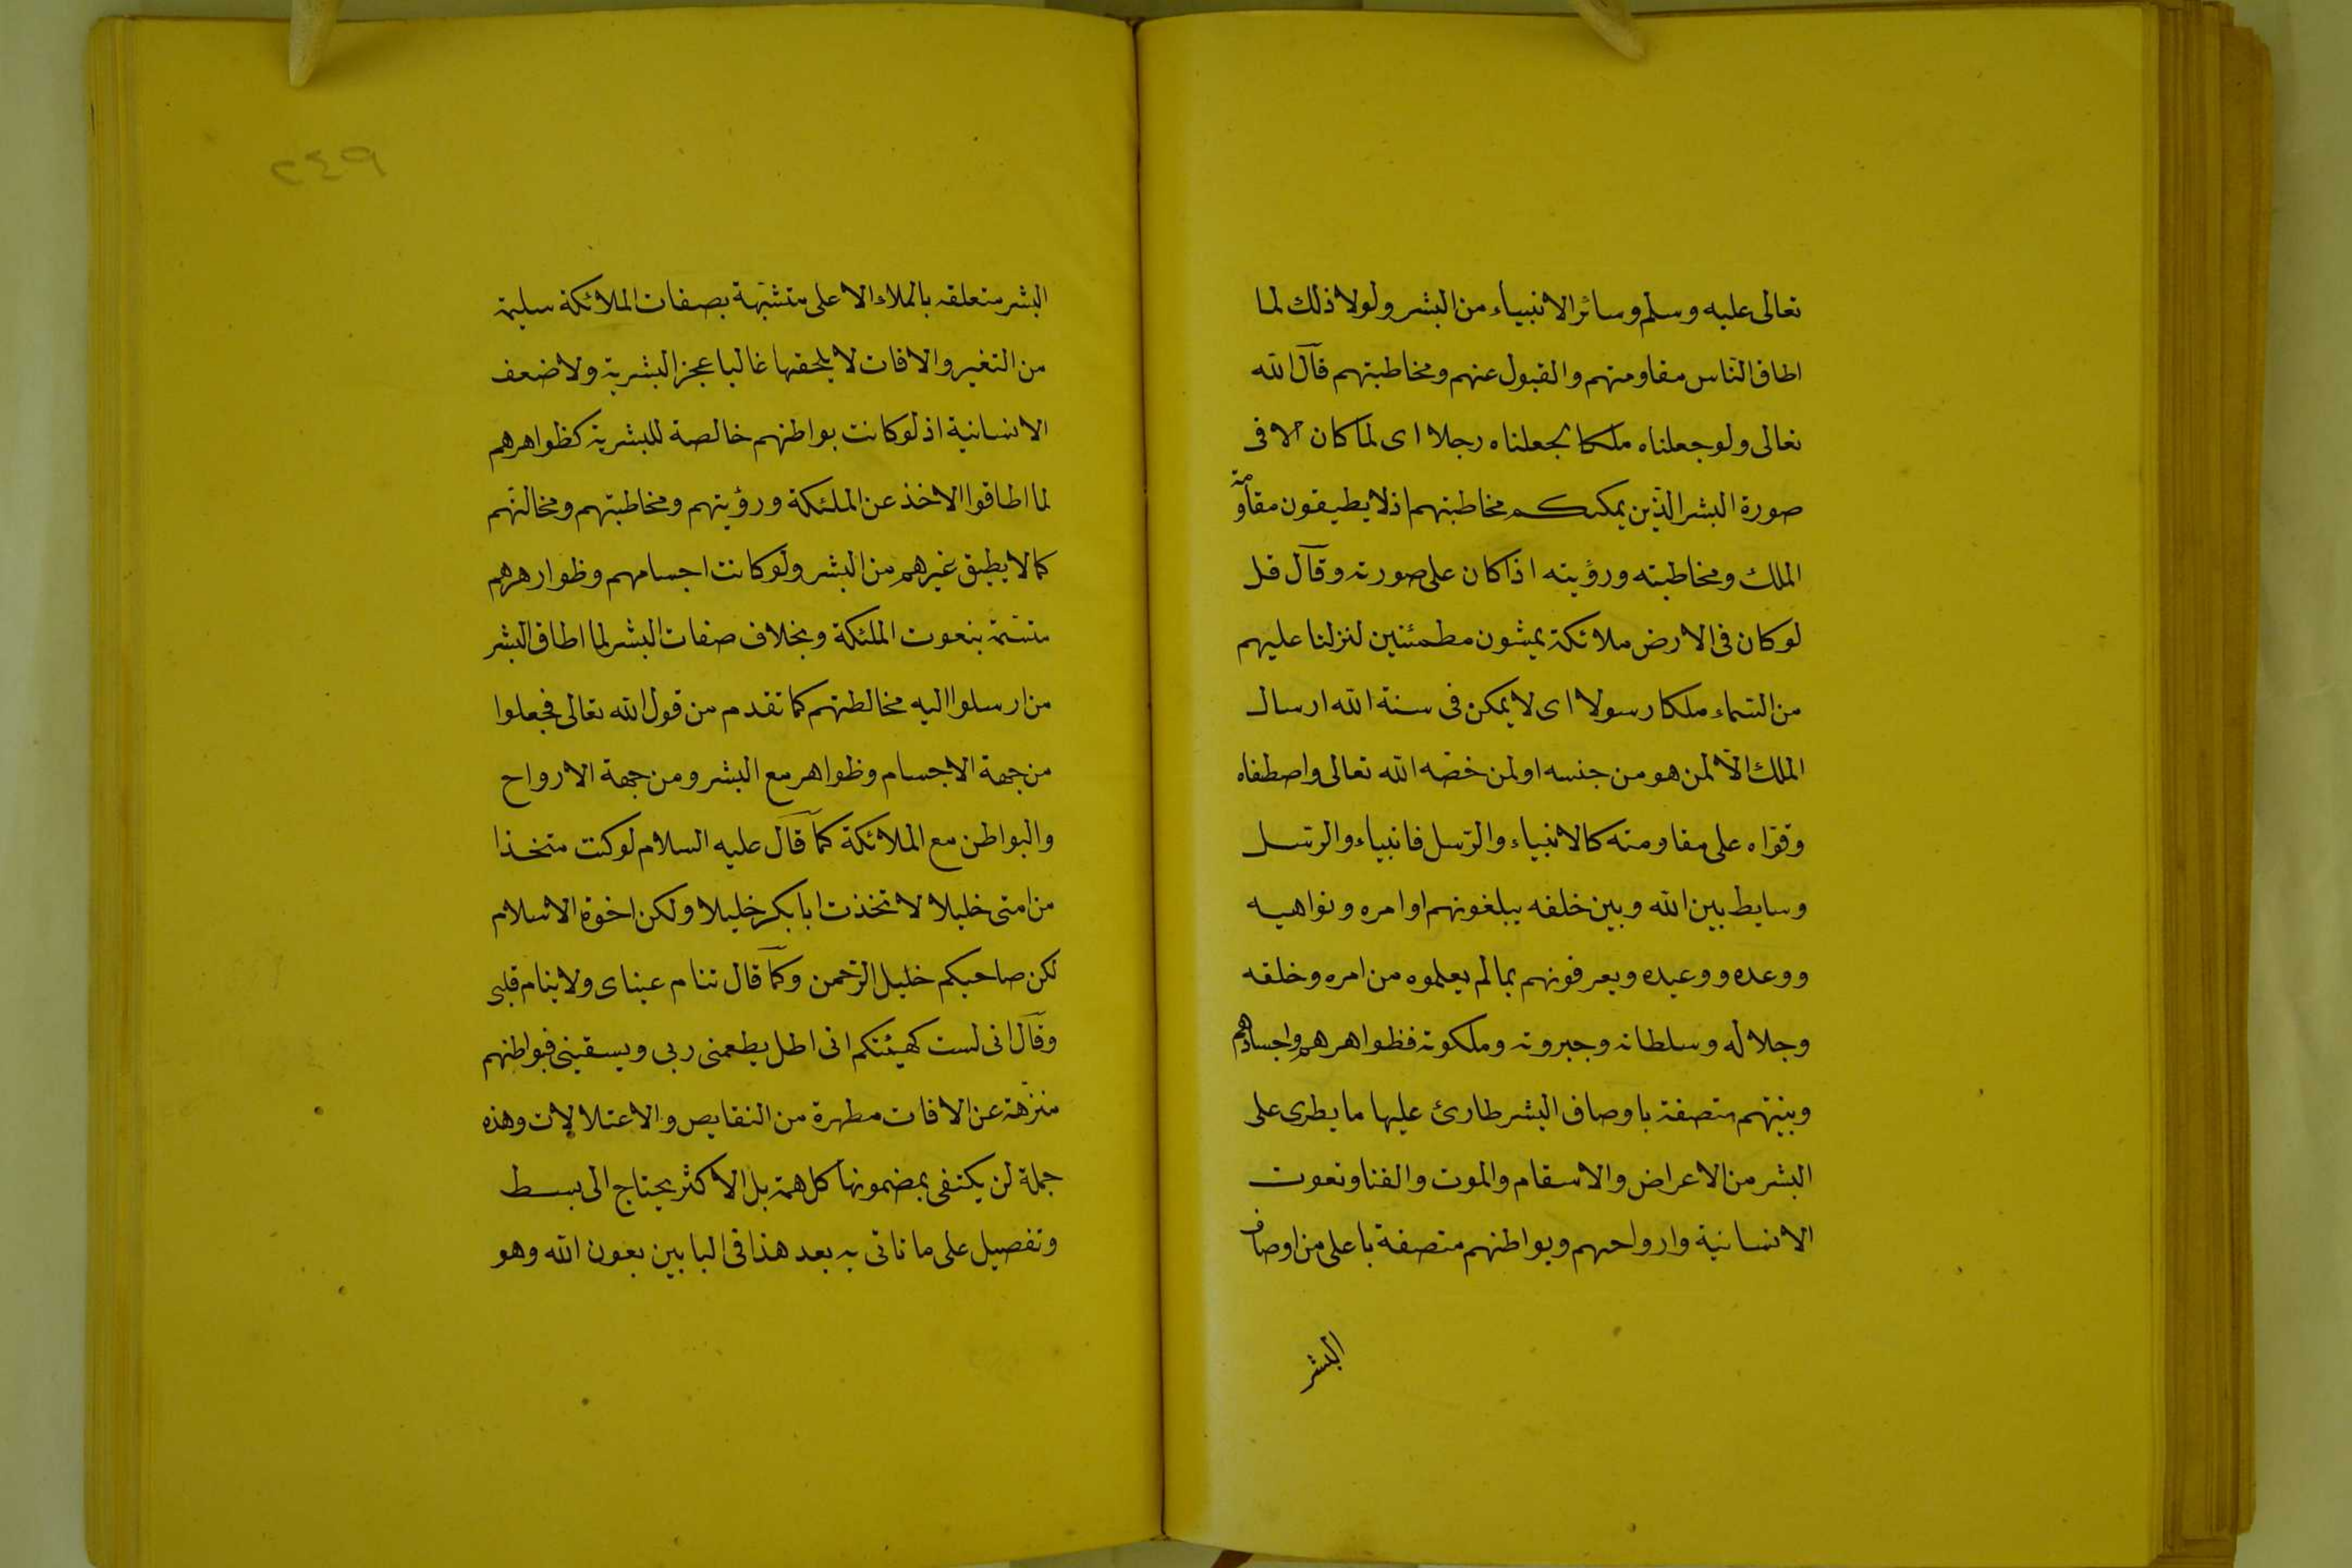 تعالى عليه وسلم وسائر الانبياء من البشر ولولا ذلك لما
اطاق الناس مقاومتهم والقبول عنهم ومخاطبتهم قال الله
تعالى ولو جعلناه ملكا لجعلناه رجلا اى لما كان الا فى
صورة البشر الذين يمكنكم مخاطبتهم اذ لا يطيقون مقاومة
الملك ومخاطبته ورؤيته اذا كان على صورته وقال قل
لو كان فى الارض ملائكة يمشون مطمئنين لنزلنا عليهم
من السماء ملكا رسولا اى لا يمكن فى سنة الله ارسال
الملك الا لمن هو من جنسه او لمن خصه الله تعالى واصطفاه
وقواه على مقاومته كالانبياء والرسل فانبياء والرسل
وسايط بين الله وبين خلقه يبلغونهم اوامره ونواهيه
ووعده ووعيده ويعرفونهم بما لم يعلموه من امره وخلقه
وجلاله وسلطانه وجبروته وملكوته فظواهرهم واجسادهم
وبنيتهم متصفة باوصاف البشر طارئ عليها ما يطرى على
البشر من الاعراض والاسقام والموت والفنا ونعوت
الانسانية وارواحهم وبواطنهم متصفة باعلى من اوصاف
البشر
٢٤٩
البشر متعلقه بالملاء الاعلى متشبهة بصفات الملائكة سليمة
من التغير والافات لا يلحقها غالبا عجز البشرية ولا ضعف
الانسانية اذ لو كانت بواطنهم خالصة للبشرية كظواهرهم
لما اطاقوا الاخذ عن الملئكة ورؤيتهم ومخاطبتهم ومخالتهم
كما لا يطيق غيرهم من البشر ولو كانت اجسامهم وظوارهرهم
متسمة بنعوت الملئكة وبخلاف صفات البشر لما اطاق البشر
من ارسلوا اليه مخالطتهم كما تقدم من قول الله تعالى فجعلوا
من جهة الاجسام وظواهر مع البشر ومن جهة الارواح
والبواطن مع الملائكة كما قال عليه السلام لو كنت متخذا
من امتى خليلا لاتخذت ابا بكر خليلا ولكن اخوة الاسلام
لكن صاحبكم خليل الرحمن وكما قال تنام عيناى ولا ينام قلبى
وقال انى لست كهيئتكم انى اظل يطعمنى ربى ويسقينى فبواطنهم
منزهة عن الافات مطهرة من النقايص والاعتلالات وهذه
جملة لن يكتفى بمضمونها كل همة بل الاكثر يحتاج الى بسط
وتفصيل على ما ناتى به بعد هذا فى البابين بعون الله وهو